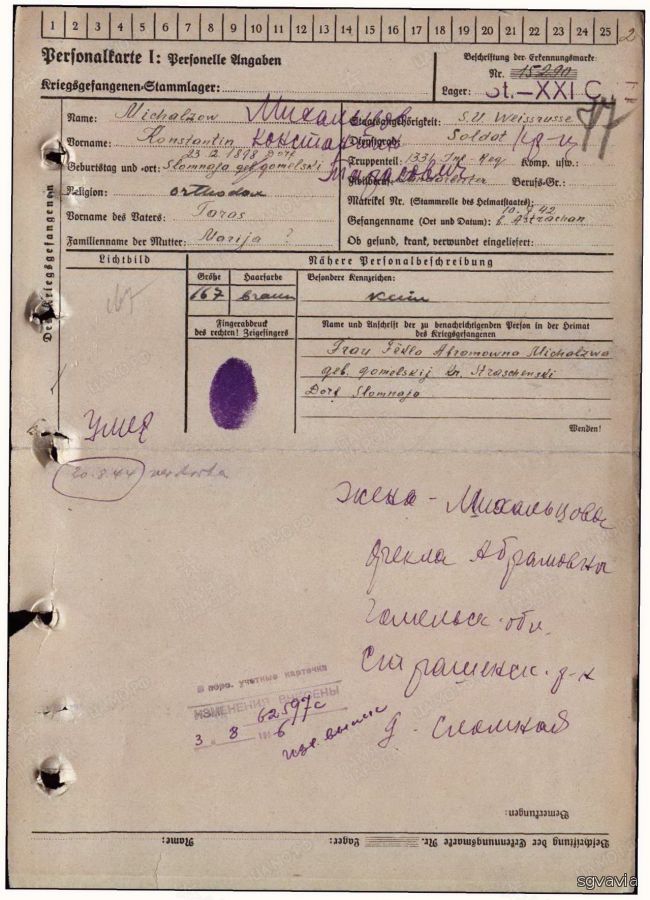 1 2 3 4 5 6 7 8 9 10 11 12 13 14 15 16 17 18 19 20 21 22 23 24 25
2
Personalkarte I: Personelle Angaben
Beschriftung der Erkennungsmarke
Nr. 15290
Kriegsgefangenen-Stammlager:
Lager: St.-XXI C
77
Des Kriegsgefangenen
Name: Michalzow Михальцов
Staatsangehörigkeit: S.U. Weissrusse
Vorname: Konstantin Константин
Dienstgrad: Soldat
Geburtstag und -ort: 23.2.1898 Dorf Slomnaja geb. gomelski
Тарасович
Truppenteil: 1336 Inf Reg Komp. usw.:
Berufs-Gr.:
Religion: orthodox
Matrikel Nr. (Stammrolle des Heimatstaates):
Vorname des Vaters: Taras
Gefangenname (Ort und Datum): 10.8.42 b. Astrachan
Familienname der Mutter: Marija ?
Ob gesund, krank, verwundet eingeliefert:
Lichtbild
Nähere Personalbeschreibung
Größe
Haarfarbe
Besondere Kennzeichen:
167
braun
Keine
Fingerabdruck
des rechten! Zeigefingers
Name und Anschrift der zu benachrichtigenden Person in der Heimat
des Kriegsgefangenen
Frau Fekla Abramowna Michalzwa
geb. gomelskij Kr. Straschenski
Dorf Slomnaja
Wenden!
умер
20.8.44
жена - Михальцова
Фекла Абрамовна
Гомельск. обл.
Страшенск. р-н
д. Сломная
В перс. учетные карточки
ИЗМЕНЕНИЯ ВНЕСЕНЫ
62597с
3 8 1946
Bemerkungen:
Beschriftung der Erkennungsmarke Nr.
Lager:
Name:
sgvavia